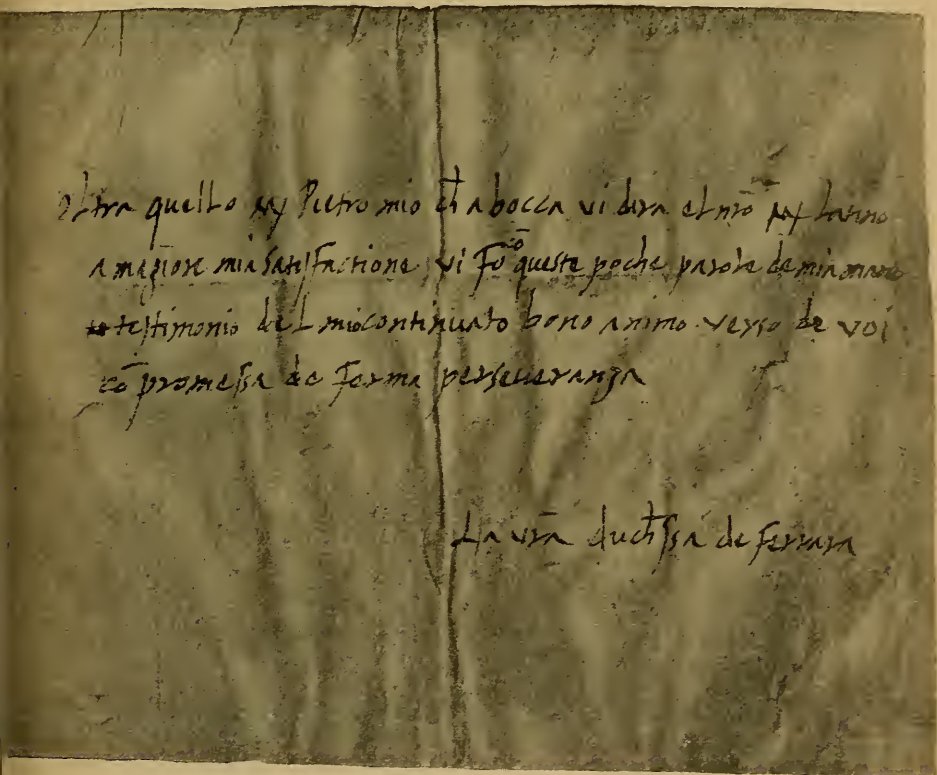 oltra quello mß Pietro mio ch̄ a bocca vi dira el nr̄o mß
a magiore mia satisfactione vi fo cō queste poche parole de mia mano
testimonio del mio continuato bono animo verso de voi
cō promessa de ferma perseueranza
La vr̄a duch̄ssa de ferrara